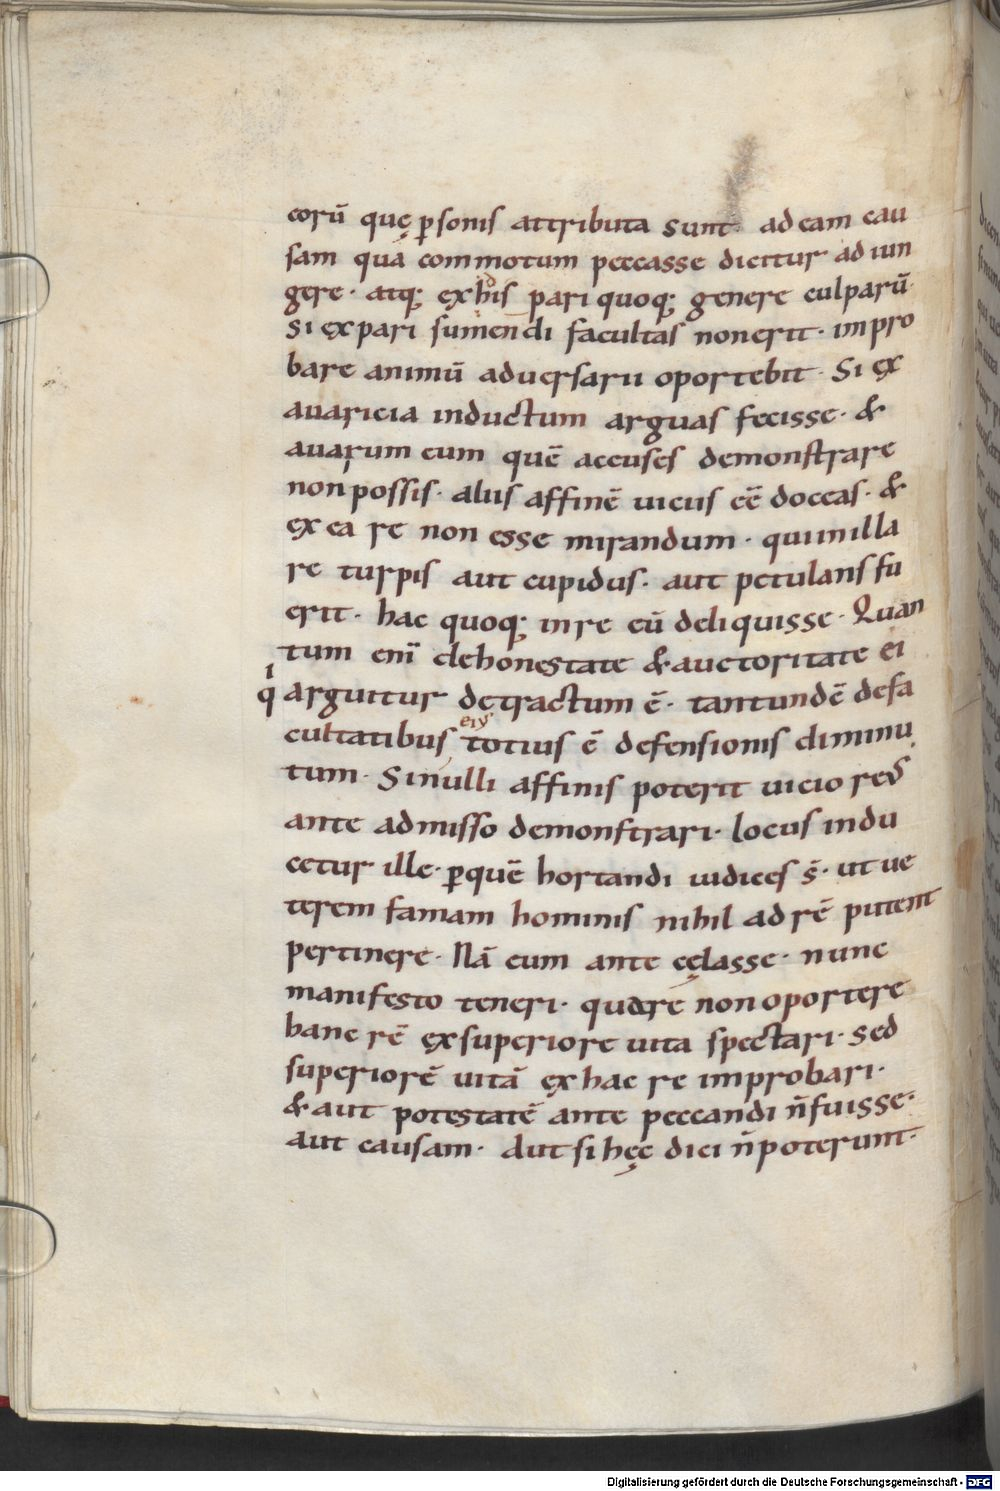 eorū quę ꝑsonis attributa sunt· ad eam cau
sam qua commotum peccasse dicitur adiun
gere· atq; ex his pari quoq; genere culparū·
Si ex pari sumendi facultas non erit· impro
bare animū adversarii oportebit· Si ex
avaricia inductum arguas fecisse· &
avarum eum quē accuses demonstrare
non possis· aliis affinē viciis eē doceas· &
ex ea re non esse mirandum· qui in illa
re turpis aut cupidus· aut petulans fu
erit· hac quoq; in re eū deliquisse· Quan
tum eni dehonestate & auctoritate ei
q arguitur detractum ē· tantundē defa
cultatibus eiꝰ totius ē defensionis diminu
tum· Si nulli affinis poterit vicio reꝰ
ante admisso demonstrari· locus indu
cetur ille· ꝑ quē hortandi iudices s̄· ut ve
terem famam hominis nihil ad rē putent
pertinere· Nā eum ante cęlasse· nunc
manifesto teneri· quare non oportere
hanc rē ex superiore vita spectari· sed
superiorē vitā ex hac re improbari·
& aut potestatē ante peccandi n̄ fuisse·
aut causam· Aut si hęc dici n̄ poterunt·
Digitalisierung gefördert durch die Deutsche Forschungsgemeinschaft - DFG